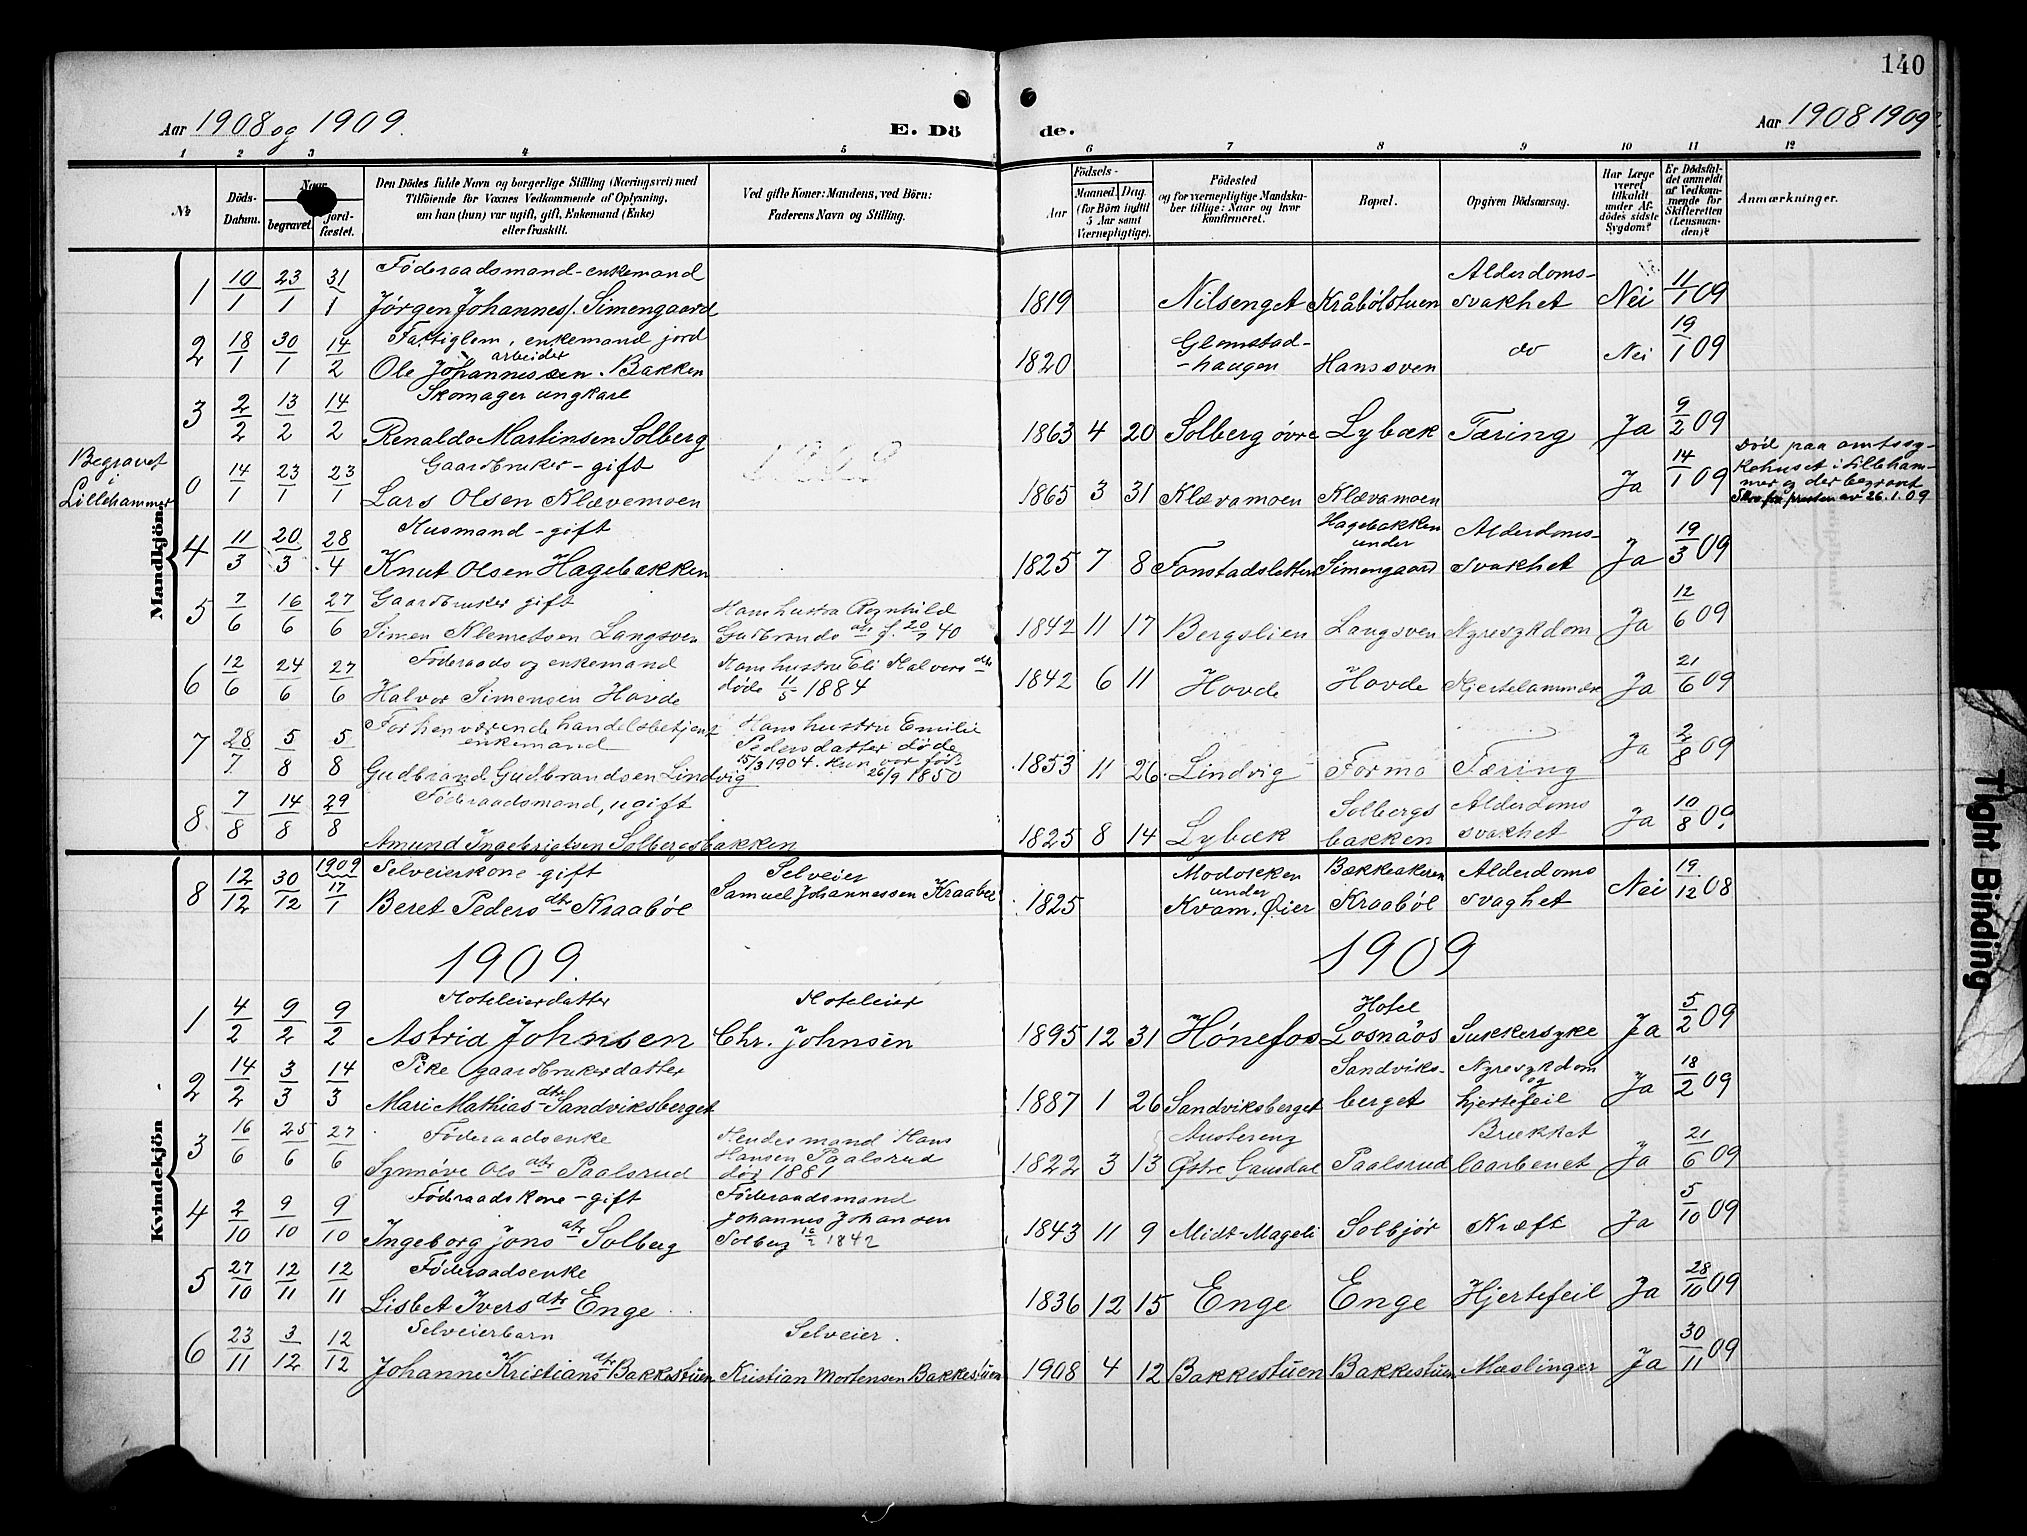 140
Aar 1908 og 1909.
E. Döde.
Aar 1908 1909
1 2 3 4 5 6 7 8 9 10 11 12
No
Döds-Datum.
Naar
begravet.
jord-fæstet.
Den Dödes fulde Navn og borgerlige Stilling (Næringsvei) med
Tilföiende for Voxnes Vedkommende af Oplysning,
om han (hun) var ugift, gift, Enkemand (Enke)
eller fraskilt.
Ved gifte Koner: Mandens, ved Börn:
Faderens Navn og Stilling.
Födsels-
Aar
Maaned. Dag.
(for Börn indtil
5 Aar samt
Værnepligtige).
Födested
og for værnepligtige Mandska-
ber tillige: Naar og hvor
konfirmeret.
Bopæl.
Opgiven Dödsaarsag.
Har Læge
været
tilkaldt
under Af-
dödes sidste
Sygdom?
Er Dödsfal-
det anmeldt
af Vedkom-
mende for
Skifteretten
(Lensman-
den)?
Anmærkninger.
Mandkjön
Föderaadsmand - enkemand Alderdoms-
1 10/1 23/1 31/1 Jørgen Johannes/. Simengaard 1819 Nilsenget Kråbölstuen svakhet Nei 11/1 09
Fattiglem, enkemand jord Glomstad-
arbeider
2 18/1 30/1 14/2 Ole Johannessen Bakken 1820 -haugen Hanssven do Nei 19/1 09
Skomager ungkarl
3 2/2 13/2 14/2 Renaldo Martinsen Solberg 1863 4 20 Solberg övre Lybæk Tæring Ja 9/2 09
Begravet
i
Lillehammer
Gaardbruker - gift
0 14/1 23/1 23/1 Lars Olsen Klævemoen 1865 3 31 Klævamoen Klævamoen Ja 14/1 09
Död paa amtssy-
kehuset i Lilleham-
mer og der begravet
Skr. fra presten av 26.1.09
Husmand - gift Hagebakken Alderdoms-
under
4 11/3 20/3 28/4 Knut Olsen Hagebakken 1825 7 8 Fonstadsletten Simengaard svakhet Ja 19/3 09
Gaardbruker gift Hans hustru Rognhild
5 7/6 16/6 27/6 Simen Klemetsen Langsven Gudbrands dtr f. 20/7 40 1842 11 17 Bergslien Langsven Nyresykdom Ja 12/6 09
Föderaads og enkemand Hans hustru Eli Halvors dtr
6 12/6 24/6 27/6 Halvor Simensen Hovde döde 11/5 1884 1842 6 11 Hovde Hovde Hjertelammelse Ja 21/6 09
Forhenværende handelsbetjent Hans hustru Emilie
enkemand Pedersdatter döde
15/3 1904. hun var föd
7 28/7 5/8 5/8 Gudbrand Gudbrandsen Lindvig 26/9 1850 1853 11 26 Lindvig Formo Tæring Ja 2/8 09
Föderaadsmand, ugift Solbergs Alderdoms
8 7/8 14/8 29/8 Amund Ingebrigtsen Solbergsbakken 1825 8 14 Lybæk bakken svakhet Ja 10/8 09.
Kvindekjön
1909 Selveierkone - gift Selveier Modokken Bækkeakeren Alderdoms
under
8 12/12 30/12 17/1 Beret Peders dtr Kraaböl Samuel Johannessen Kraaböl 1825 Kvam, Øier Kraaböl svaghet Nei 19/12 08
1909. 1909
Hoteleierdatter Hoteleier Hotel
1 4/2 9/2 9/2 Astrid Johnsen Chr. Johnsen 1895 12 31 Hönefos Losnaos Sukkersyke Ja 5/2 09
Pike gaardbrukerdatter Sandviks- Nyresykdom
og
2 14/2 3/3 14/3 Mari Mathias dtr Sandviksberget 1887 1 26 Sandviksberget berget hjertefeil Ja 18/2 09
Föderaadsenke Hendes mand Hans Brækket
Hansen Paalsrud
3 16/6 25/6 27/6 Synnöve Ols dtr Paalsrud död 1881 1822 3 13 Østre Gausdal Paalsrud laarbenet Ja 21/6 09
Föderaadskone - gift Föderaadsmand
Johannes Johansen
4 2/10 9/10 9/10 Ingeborg Jons dtr Solberg Solberg 1842 1843 11 9 Midt-Mageli Solbjör Kræft Ja 5/10 09
Föderaadsenke
5 27/10 12/11 12/11 Lisbet Ivers dtr Enge 1836 12 15 Enge Enge Hjertefeil Ja 28/10 09
Selveierbarn Selveier.
6 23/11 3/12 12/12 Johanne Kristians dtr Bakkestuen Kristian Mortensen Bakkestuen 1908 4 12 Bakkestuen Bakkestuen Mæslinger Ja 30/11 09
Tight Binding